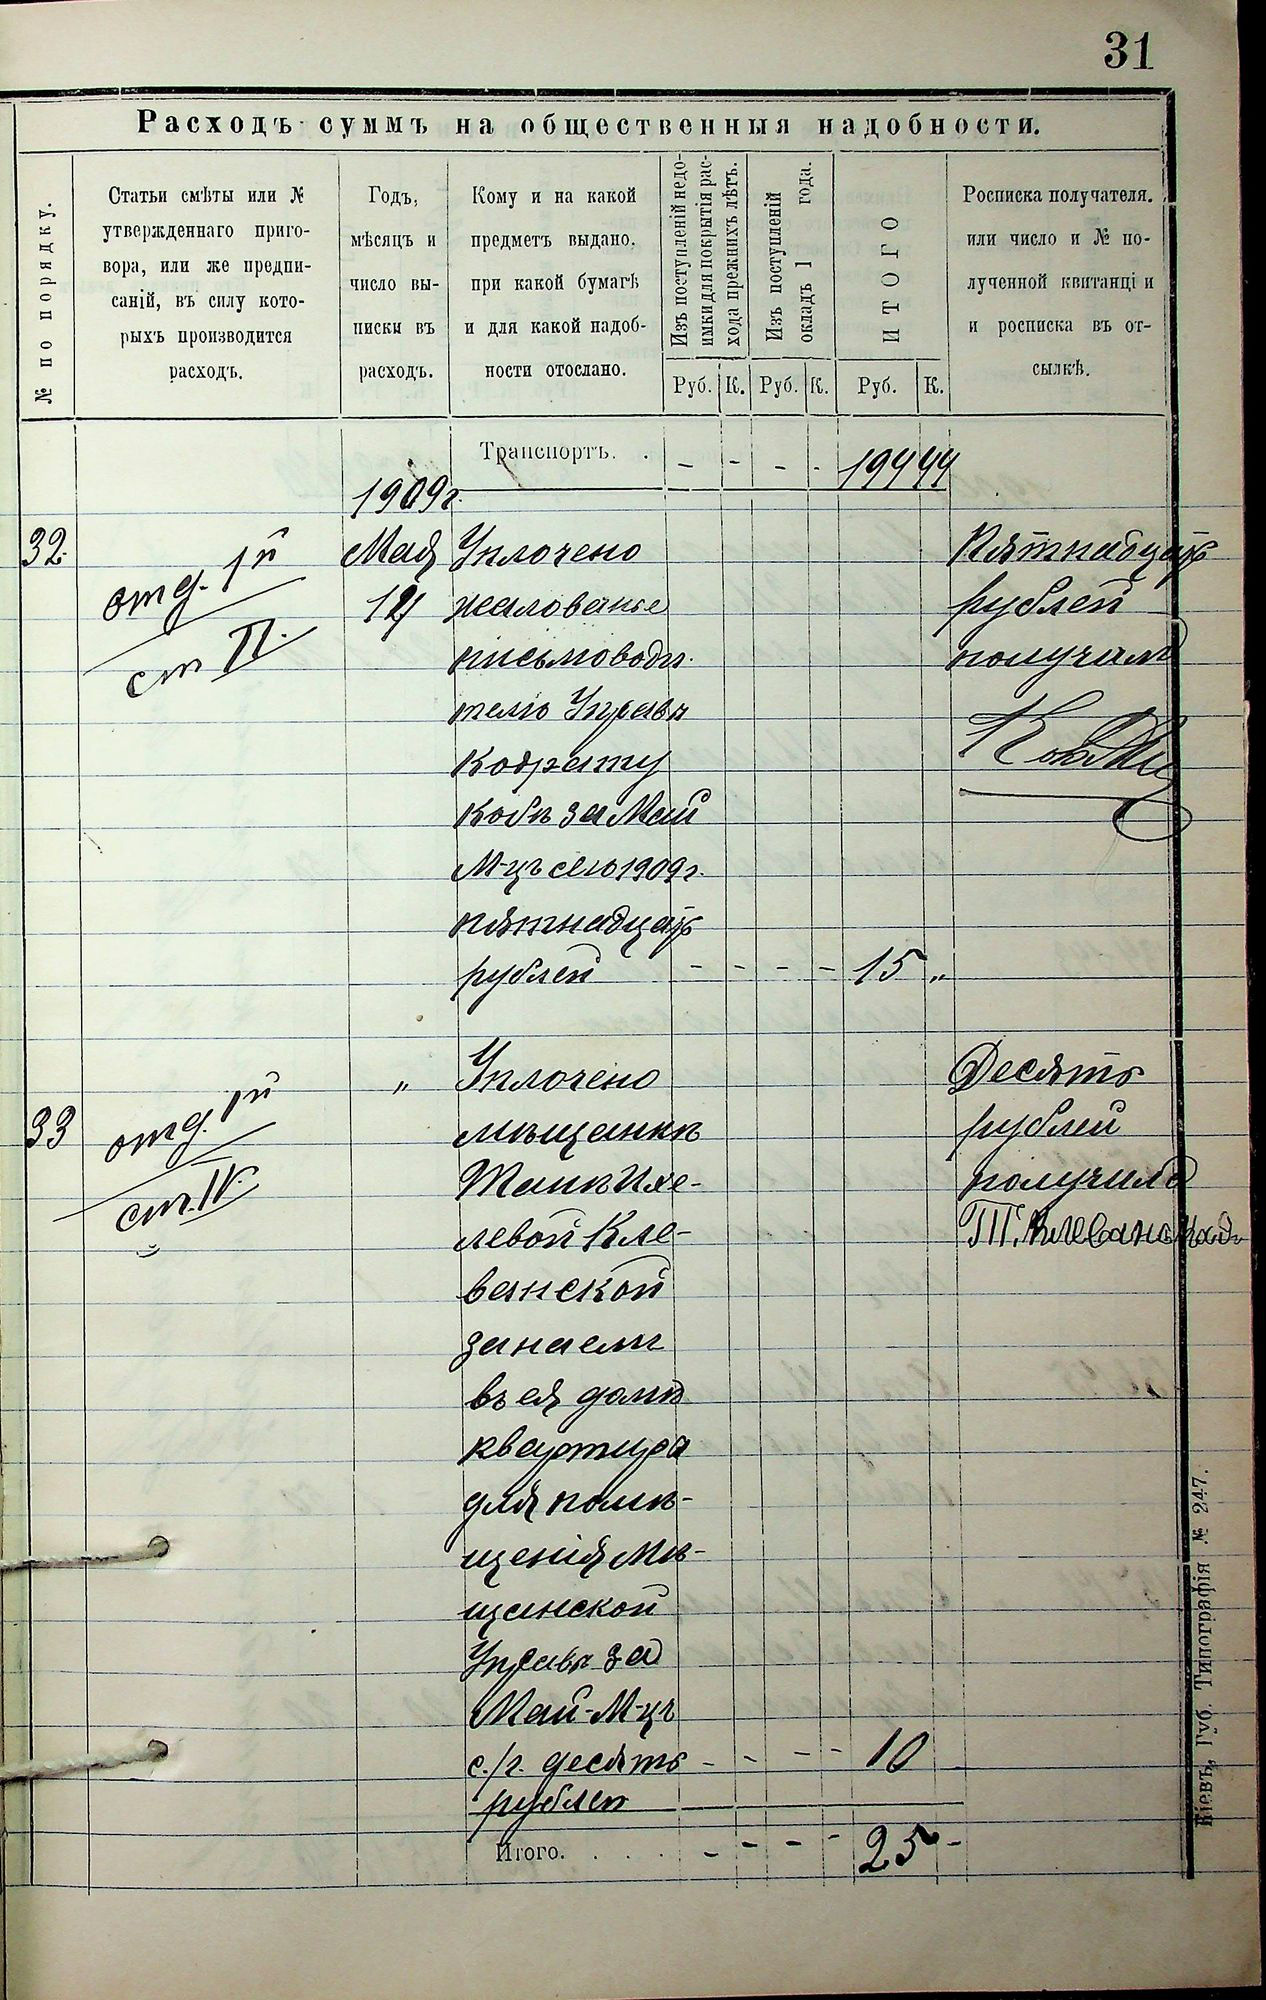 31
Расходъ суммъ на общественныя надобности.
№ по порядку.
Статьи смѣты или №
утвержденнаго приго-
вора, или же предпи-
саній, въ силу кото-
рыхъ производится
расходъ.
Годъ,
мѣсяцъ и
число вы-
писки въ
расходъ.
Кому и на какой
предметъ выдано.
при какой бумагѣ
и для какой надоб-
ности отослано.
Изъ поступленій недо-
имки для покрытія рас-
хода прежнихъ лѣтъ.
Изъ поступленій
окладъ 1 года.
ИТОГО
Росписка получателя.
или число и № по-
лученной квитанці и
и росписка въ от-
сылкѣ.
Руб. К. Руб. К. Руб. К.
Транспортъ. . - - - - 194 44
1909г.
32. отд. 1й
ст. II.
Мая
12
Уплочено
жалованье
письмоводи-
телю Управы
Кодрату
за Май
М-цъ сего 1909г.
пятнадцать
рублей - - - - 15 "
Пятнадцать
рублей
получалъ
33 отд. 1й
ст. IV.
"
Уплочено
мѣщанкѣ
Хае-
левой Кле-
ванской
за наемъ
въ ея домѣ
квартиры
для помѣ-
щенія Мѣ-
щанской
Управы за
Май-М-цъ
с./г. десять - - - - 10
рублей
Десять
рублей
получила
Т. Клеванская
Итого. . . . . - - - - 25 -
Кіевъ, Губ. Типографія № 247.